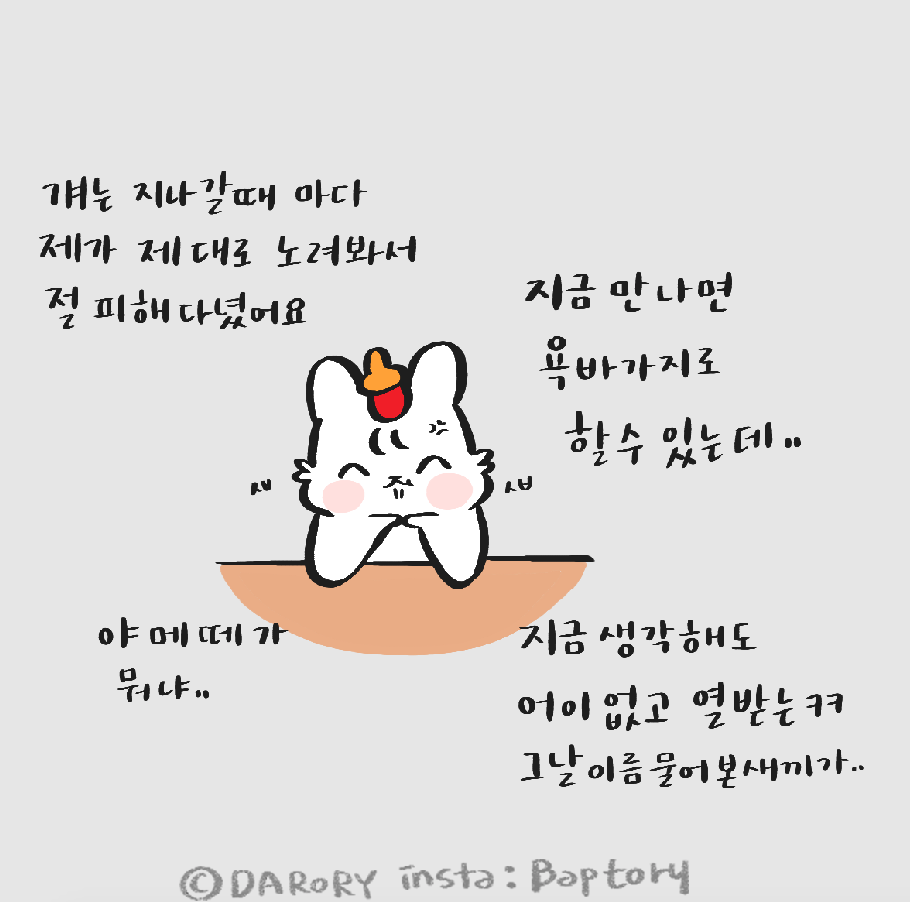 걔는 지나갈때 마다
제가 제대로 노려봐서
절 피해다녔어요
지금 만나면
욕바가지로
할수 있는데..
새
샵
야메떼가
뭐냐..
지금 생각해도
어이없고 열받는ㅋㅋ
그날이름물어본새끼가..
©DARORY insta: Baptory